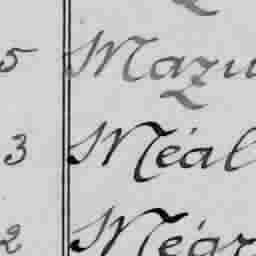 5 Mazu
3 Méal
2 Mégr